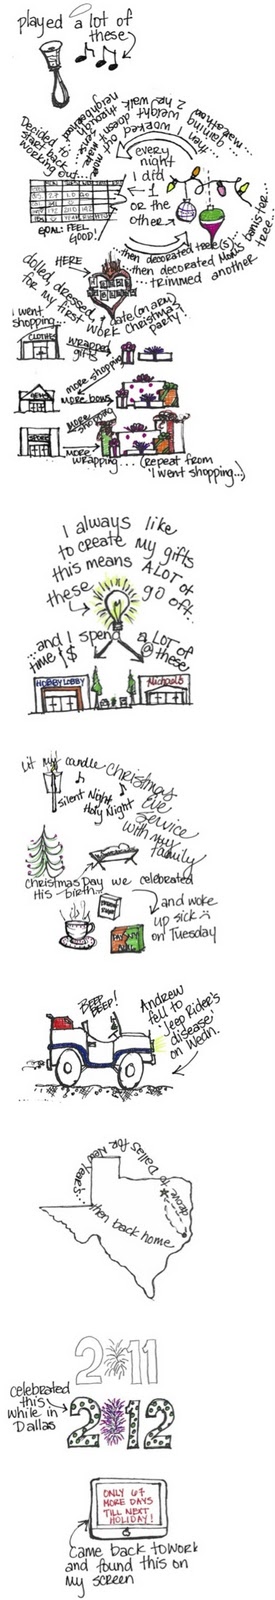 played a lot of
these
Decided to
start back
working out...
GOAL: FEEL
GOOD!
every
night
I did
1
or the
other
...then decorated tree(s)...
...then decorated Mom's banister...
...trimmed another
tree!
HERE
dolled, dressed,
for my first
date (on arm)
work Christmas
Party!
I went
shopping...
CLOTHES
wrapped
gifts
more shopping
more bows
more
shopping
SPORTS
more
wrapping... (repeat from
"I went shopping...)
I always like
to create my gifts
this means A LOT of
these go off...
...and I spend a LOT of
time/$ @ these!
HOBBY LOBBY
Michaels
Lit my candle
Silent Night,
Holy Night
Christmas
Eve
Service
with my
family
Christmas Day we celebrated
His birth...
and woke
up sick
on Tuesday
BEEP
BEEP!
Andrew
fell to
'Jeep Rider's
disease'
on Wedn.
drove to
Dallas for New
Year's...
then back home
2011
celebrated
this
while in
Dallas
2012
ONLY 67
MORE DAYS
TILL NEXT
HOLIDAY!
Came back to work
and found this on
my screen